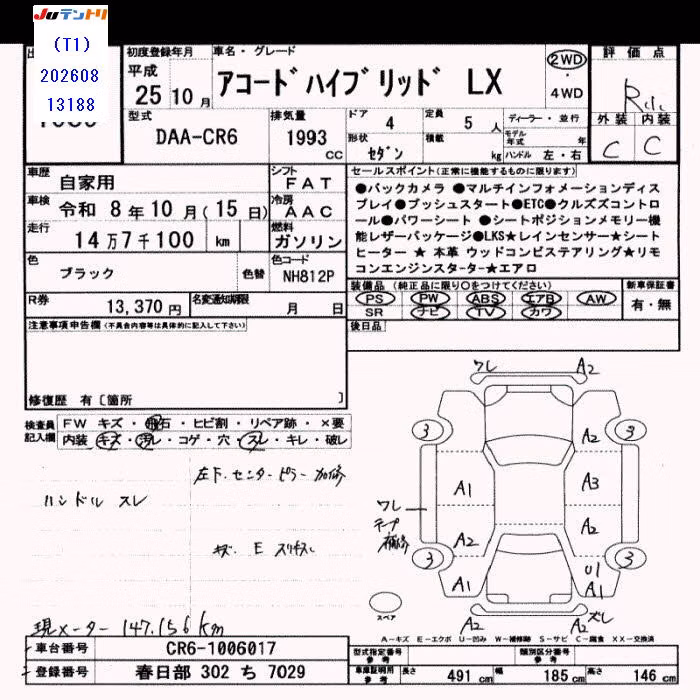 JUテントリ
(T1)
202608
13188
初度登録年月
平成
25年10月
車名・グレード
アコードハイブリッド LX
2WD
・
4WD
評価点
R
外装 内装
C C
型式
DAA-CR6
排気量
1993 cc
ドア
4
定員
5 人
形状
セダン
積載
kg
ディーラー・並行
モデル年式 年
ハンドル 左・右
車歴
自家用
シフト
FAT
車検
令和 8年10月(15日)
冷房
AAC
走行
14万7千100 km
燃料
ガソリン
色
ブラック
色替
色コード
NH812P
R券
13,370円
名変通知期限
月 日
セールスポイント(正常に機能するものに限ります)
●バックカメラ ●マルチインフォメーションディス
プレイ●プッシュスタート●ETC●クルズズコントロ
ール●パワーシート ●シートポジションメモリー機
能レザーパッケージ●LKS★レインセンサー★シート
ヒーター ★ 本革 ウッドコンビステアリング★リモ
コンエンジンスターター★エアロ
装備品 (純正品に限り○をつけてください)
PS PW ABS エアB AW
SR ナビ TV カワ
新車保証書
有・無
後日品
注意事項申告欄(不具合内容等は具体的に記入して下さい)
修復歴 有〔箇所 〕
検査員
記入欄
FW キズ・飛石・ヒビ割・リペア跡・×要
内装 キズ・汚レ・コゲ・穴・スレ・キレ・破レ
左下.センターピラー加修
ハンドル スレ
現メーター 147.156km
ワレ A2
3 3
A2
A1 A3
ワレ
テープ
補修
A2
A2
3 3
U1
A1 A1
A2 A2 ズレ
スペア
A-キズ E-エクボ U-凹み W-補修跡 S-サビ C-腐食 XX-交換済
車台番号
CR6-1006017
登録番号
春日部 302 ち 7029
型式指定番号
参考
類別区分番号
参考
車庫証明用
参考
長さ 491 cm
幅 185 cm
高さ 146 cm